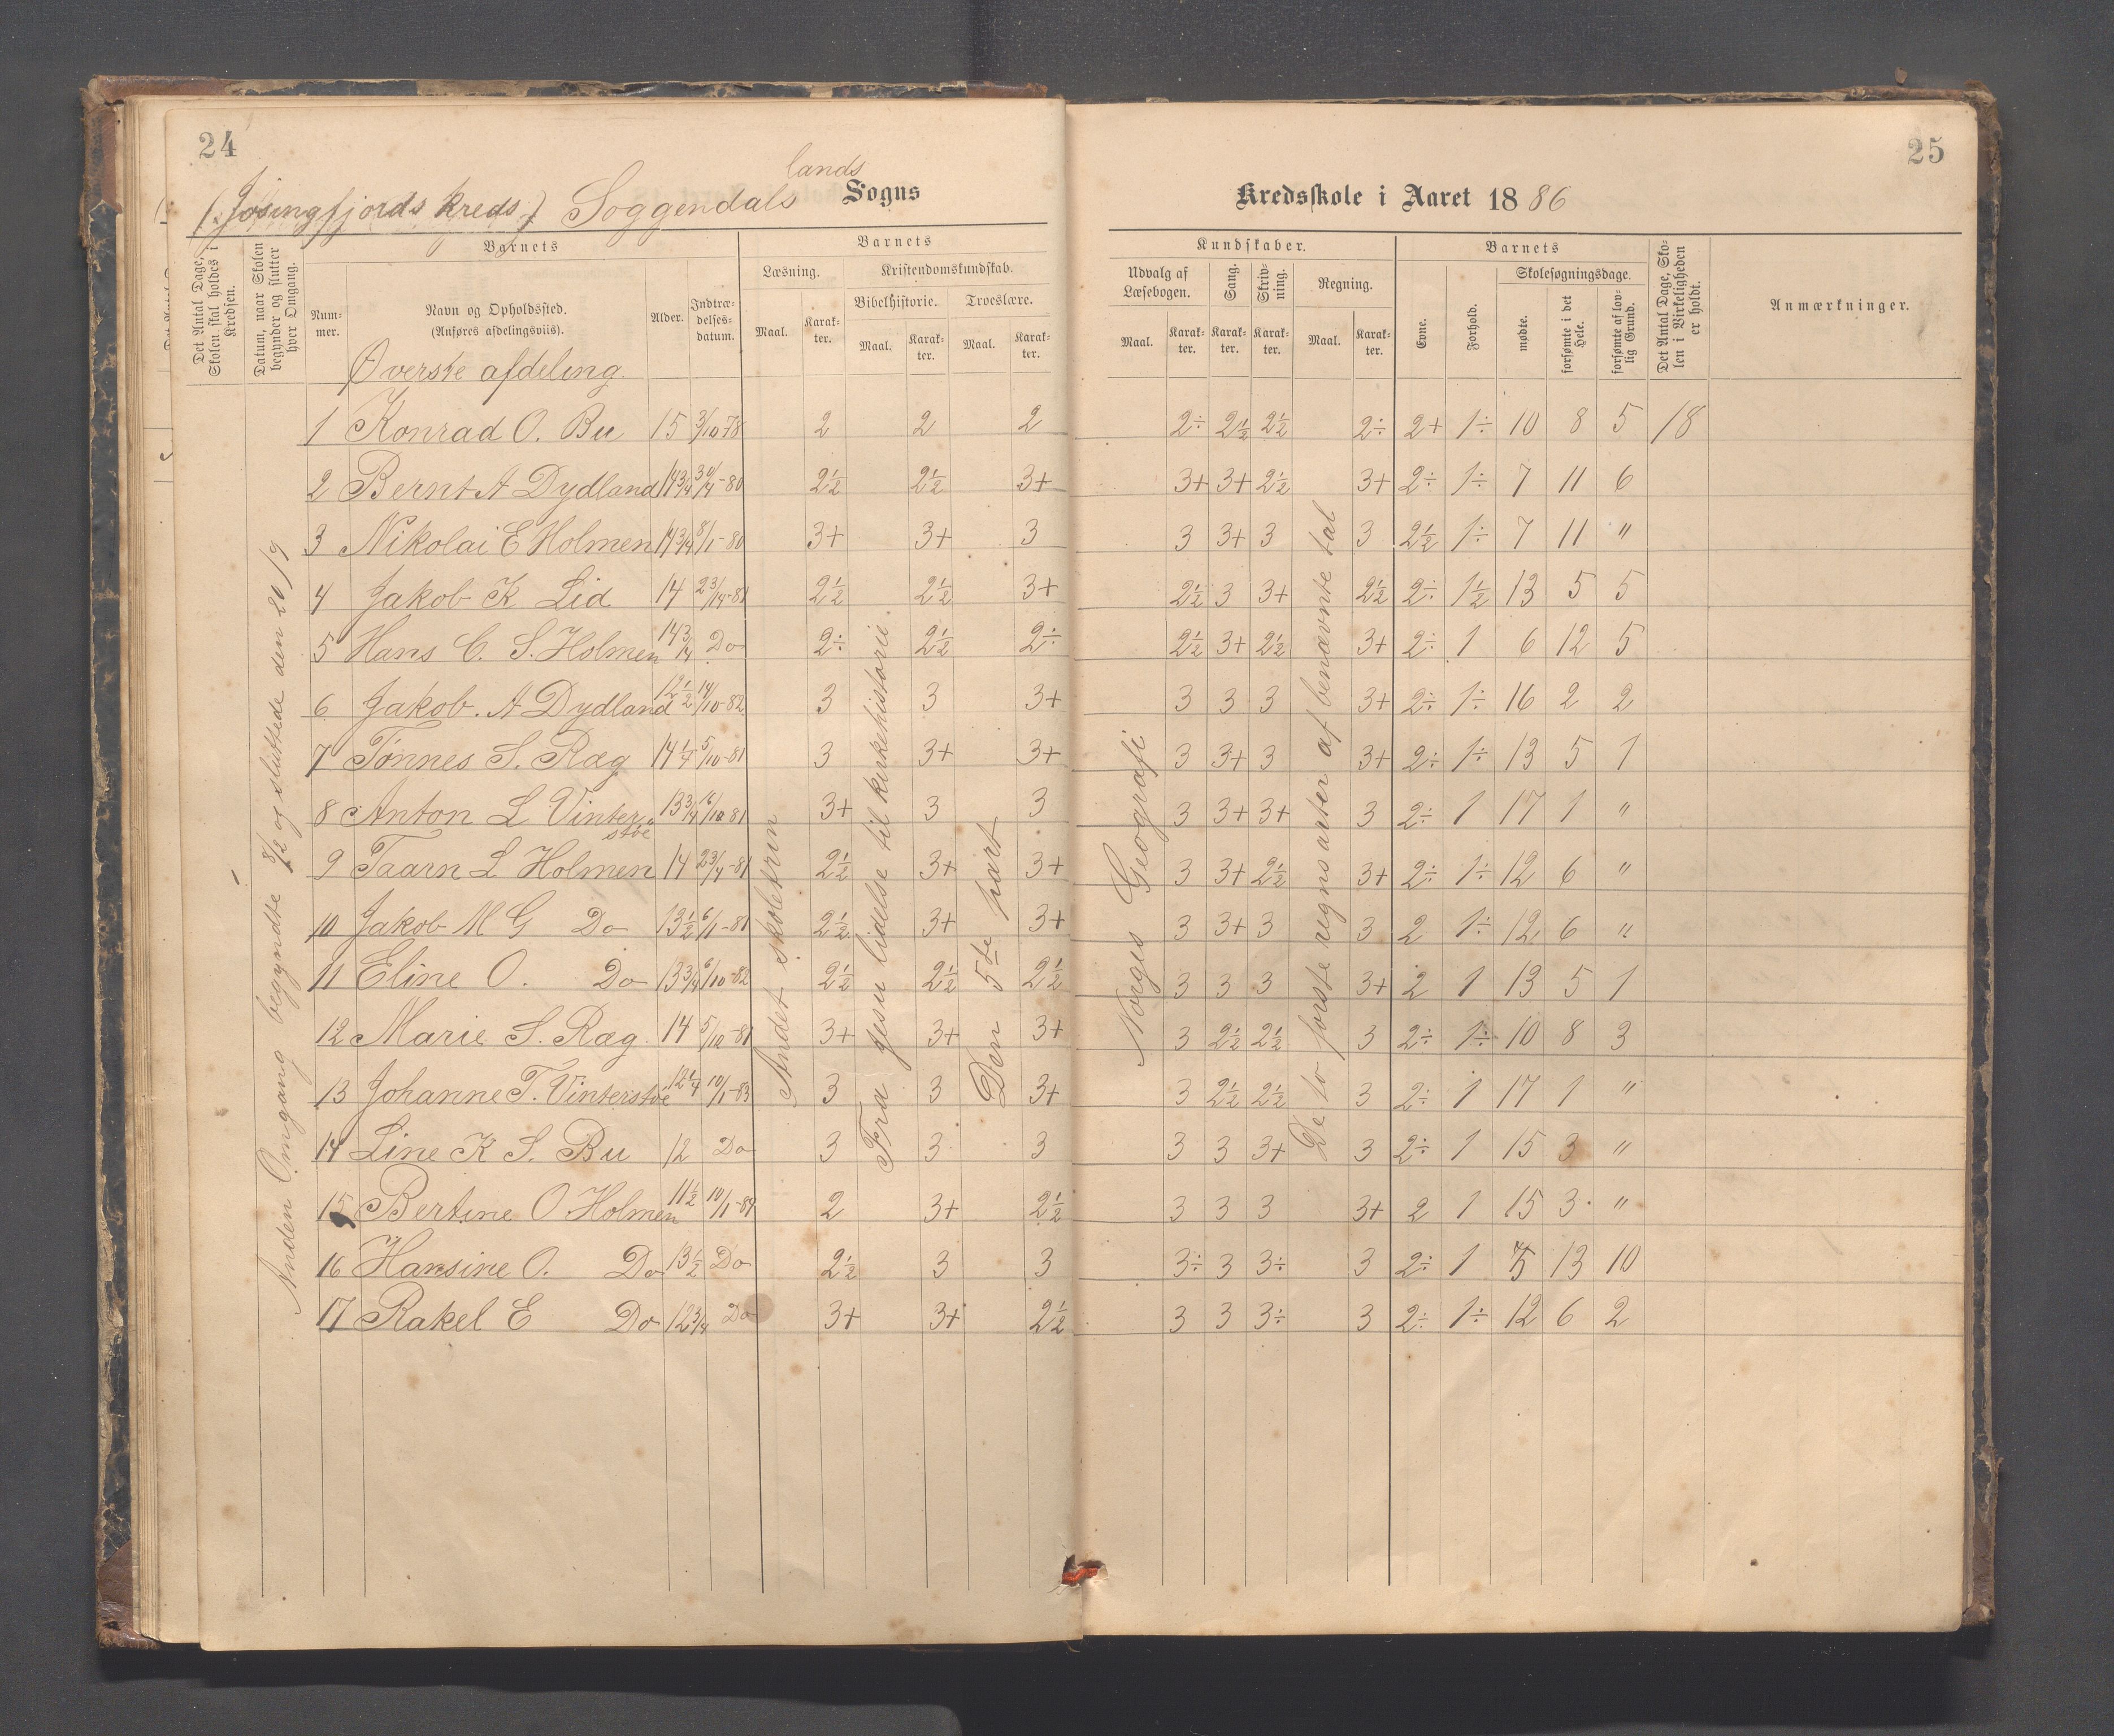 24
25
lands
(Jøsingfjords kreds) Soggendals Sogns
Kredsskole i Aaret 1886
Det Antal Dage, Skolen skal holdes i Kredsen.
Datum, naar Skolen begynder og slutter hver Omgang.
Barnets
Nummer.
Navn og Opholdssted.
(Anføres afdelingsviis).
Alder.
Indtrædelsesdatum.
Barnets
Læsning.
Kristendomskundskab.
Bibelhistorie.
Troeslære.
Maal.
Karakter.
Maal.
Karakter.
Maal.
Karakter.
Kundskaber.
Udvalg af Læsebogen.
Sang.
Skrivning.
Regning.
Maal.
Karakter.
Karakter.
Karakter.
Maal.
Karakter.
Barnets
Evne.
Forhold.
Skolesøgningsdage.
mødte.
forsømte i det Hele.
forsømte af lovlig Grund.
Det Antal Dage, Skolen i Virkeligheden er holdt.
Anmærkninger.
Øverste afdeling.
Anden Omgang begyndte 8/2 og sluttede den 20/9
Andet skoletrin
Fra Jesu lidelse til kirkehistorie
Den 5te part
Norges Geografi
De to første regnsarter af benævnte tal
1 Konrad O. Bu 15 3/10 78 2 2 2 2÷ 2½ 2½ 2÷ 2+ 1÷ 10 8 5 18
2 Bernt A Dydland 14 3/4 30/4-80 2½ 2½ 3+ 3+ 3+ 2½ 3+ 2÷ 1÷ 7 11 6
3 Nikolai E Holmen 14 3/4 8/1-80 3+ 3+ 3 3 3+ 3 3 2½ 1÷ 7 11 "
4 Jakob K Lid 14 23/4-81 2½ 2½ 3+ 2½ 3 3+ 2½ 2÷ 1½ 13 5 5
5 Hans C. S. Holmen 14 3/4 Do 2÷ 2½ 2÷ 2½ 3+ 2½ 3+ 2÷ 1 6 12 5
6 Jakob. A Dydland 12½ 14/10-82 3 3 3+ 3 3 3 3+ 2÷ 1÷ 16 2 2
7 Tønnes S. Ræg 14 1/4 5/10-81 3 3+ 3+ 3 3+ 3 3+ 2÷ 1÷ 13 5 1
8 Anton L Vinterstøe 13 3/4 16/10 81 3+ 3 3 3 3+ 3+ 3 2÷ 1 17 1 "
9 Taarn L Holmen 14 23/4-81 2½ 3+ 3+ 3 3+ 2½ 3+ 2÷ 1÷ 12 6 "
10 Jakob M G Do 13½ 6/1-81 2½ 3+ 3+ 3 3+ 3 3 2 1÷ 12 6 "
11 Eline O. Do 13 3/4 6/10-82 2½ 2½ 2½ 3 3 3 3+ 2 1 13 5 1
12 Marie S. Ræg. 14 5/10-81 3+ 3+ 3+ 3 2½ 2½ 3 2÷ 1÷ 10 8 3
13 Johanne T. Vinterstøe 12 1/4 10/1-83 3 3 3+ 3 2½ 2½ 3 2÷ 1 17 1 "
14 Line K S. Bu 12 Do 3 3 3 3 3 3+ 3 2÷ 1 15 3 "
15 Bertine O Holmen 11½ 10/1-84 2 3+ 2½ 3 3 3 3+ 2 1 15 3 "
16 Hansine O. Do 13½ Do 2½ 3 3 3÷ 3 3÷ 3 2÷ 1 5 13 10
17 Rakel E Do 12 3/4 Do 3+ 3+ 2½ 3 3 3÷ 3 2÷ 1÷ 12 6 2